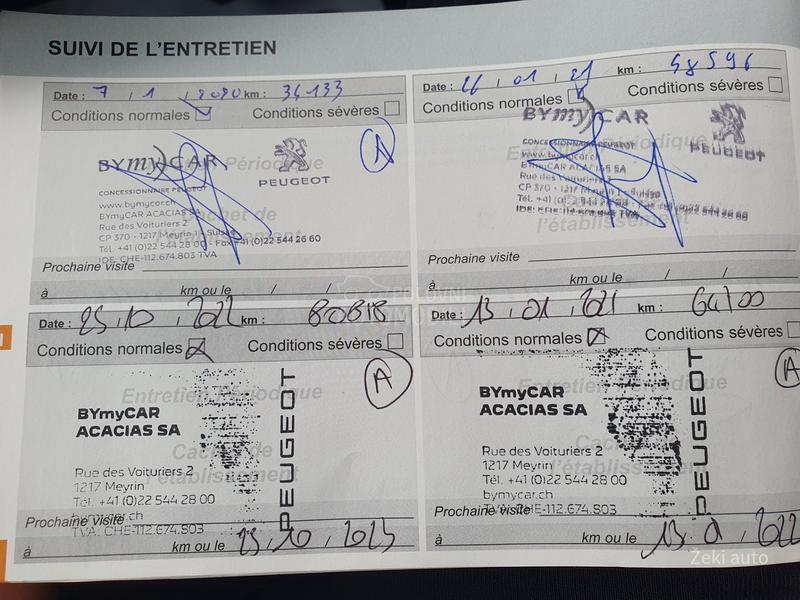 SUIVI DE L'ENTRETIEN
Date : 7 / 1 / 2020 km : 34133
Conditions normales Conditions sévères
A
BYmyCAR
PEUGEOT
CONCESSIONNAIRE PEUGEOT
www.bymycar.ch
BYmyCAR ACACIAS SA
Rue des Voituriers 2
CP 370 - 1217 Meyrin 1 - Suisse
Tél. +41 (0)22 544 28 00 - Fax +41 (0)22 544 26 60
IDE: CHE-112.674.803 TVA
Prochaine visite
à km ou le / /
Date : 26 / 01 / 21 km : 48596
Conditions normales Conditions sévères
BYmyCAR
PEUGEOT
CONCESSIONNAIRE PEUGEOT
www.bymycar.ch
BYmyCAR ACACIAS SA
Rue des Voituriers 2
CP 370 - 1217 Meyrin 1
Tél. +41 (0)
Prochaine visite
à km ou le / /
Date : 25, 10, 2022 km : 80818
Conditions normales Conditions sévères
A
Entretien Périodique
Cachet de
l'établissement
BYmyCAR
ACACIAS SA
PEUGEOT
Rue des Voituriers 2
1217 Meyrin
Tél. +41 (0)22 544 28 00
bymycar.ch
TVA: CHE-112.674.803
Prochaine visite
à km ou le 25, 10, 2023
Date : 13, 01, 2021 km : 64100
Conditions normales Conditions sévères
A
Entretien Périodique
Cachet de
l'établissement
BYmyCAR
ACACIAS SA
PEUGEOT
Rue des Voituriers 2
1217 Meyrin
Tél. +41 (0)22 544 28 00
bymycar.ch
TVA: CHE-112.674.803
Prochaine visite
à km ou le 13. 01, 2022
Žeki auto